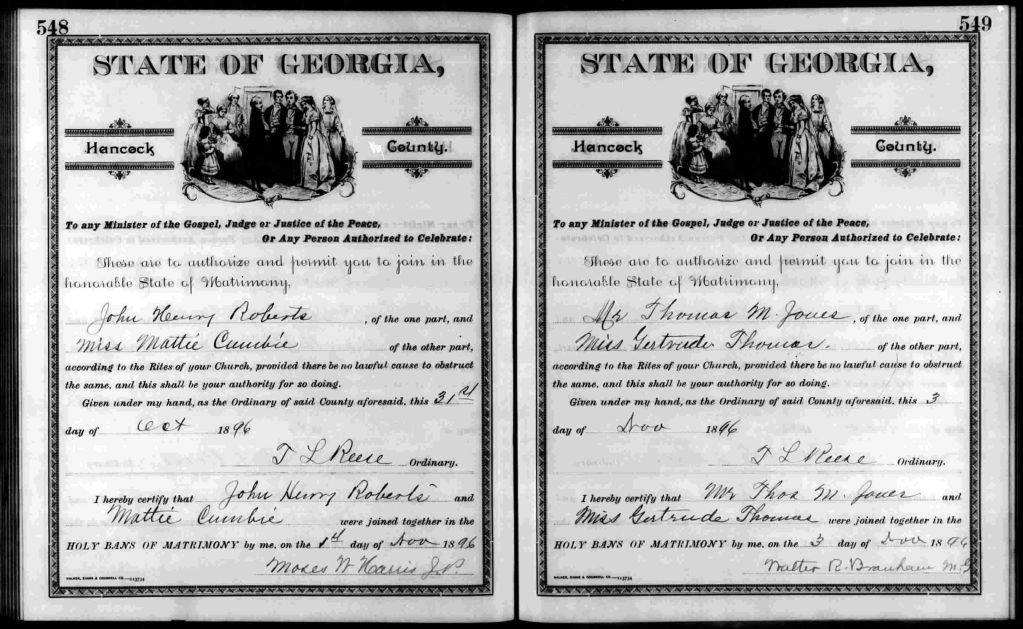 548
STATE OF GEORGIA,
Hancock County.
To any Minister of the Gospel, Judge or Justice of the Peace,
Or Any Person Authorized to Celebrate:
These are to authorize and permit you to join in the
honorable State of Matrimony,
John Henry Roberts , of the one part, and
Miss Mattie Cumbie of the other part,
according to the Rites of your Church, provided there be no lawful cause to obstruct
the same, and this shall be your authority for so doing.
Given under my hand, as the Ordinary of said County aforesaid, this 31st
day of Oct 1896
T L Reese Ordinary.
I hereby certify that John Henry Roberts and
Mattie Cumbie were joined together in the
HOLY BANS OF MATRIMONY by me, on the day of Nov 1896
Moses W Harris J.P.
WALKER, EVANS & COGSWELL CO
549
STATE OF GEORGIA,
Hancock County.
To any Minister of the Gospel, Judge or Justice of the Peace,
Or Any Person Authorized to Celebrate:
These are to authorize and permit you to join in the
honorable State of Matrimony,
Mr Thomas M. Jones , of the one part, and
Miss Gertrude Thomas. of the other part,
according to the Rites of your Church, provided there be no lawful cause to obstruct
the same, and this shall be your authority for so doing.
Given under my hand, as the Ordinary of said County aforesaid, this 3
day of Nov 1896
T L Reese Ordinary.
I hereby certify that Mr Thos M. Jones and
Miss Gertrude Thomas were joined together in the
HOLY BANS OF MATRIMONY by me, on the 3 day of Nov 1896
Walter R. Branham M.G
WALKER, EVANS & COGSWELL CO